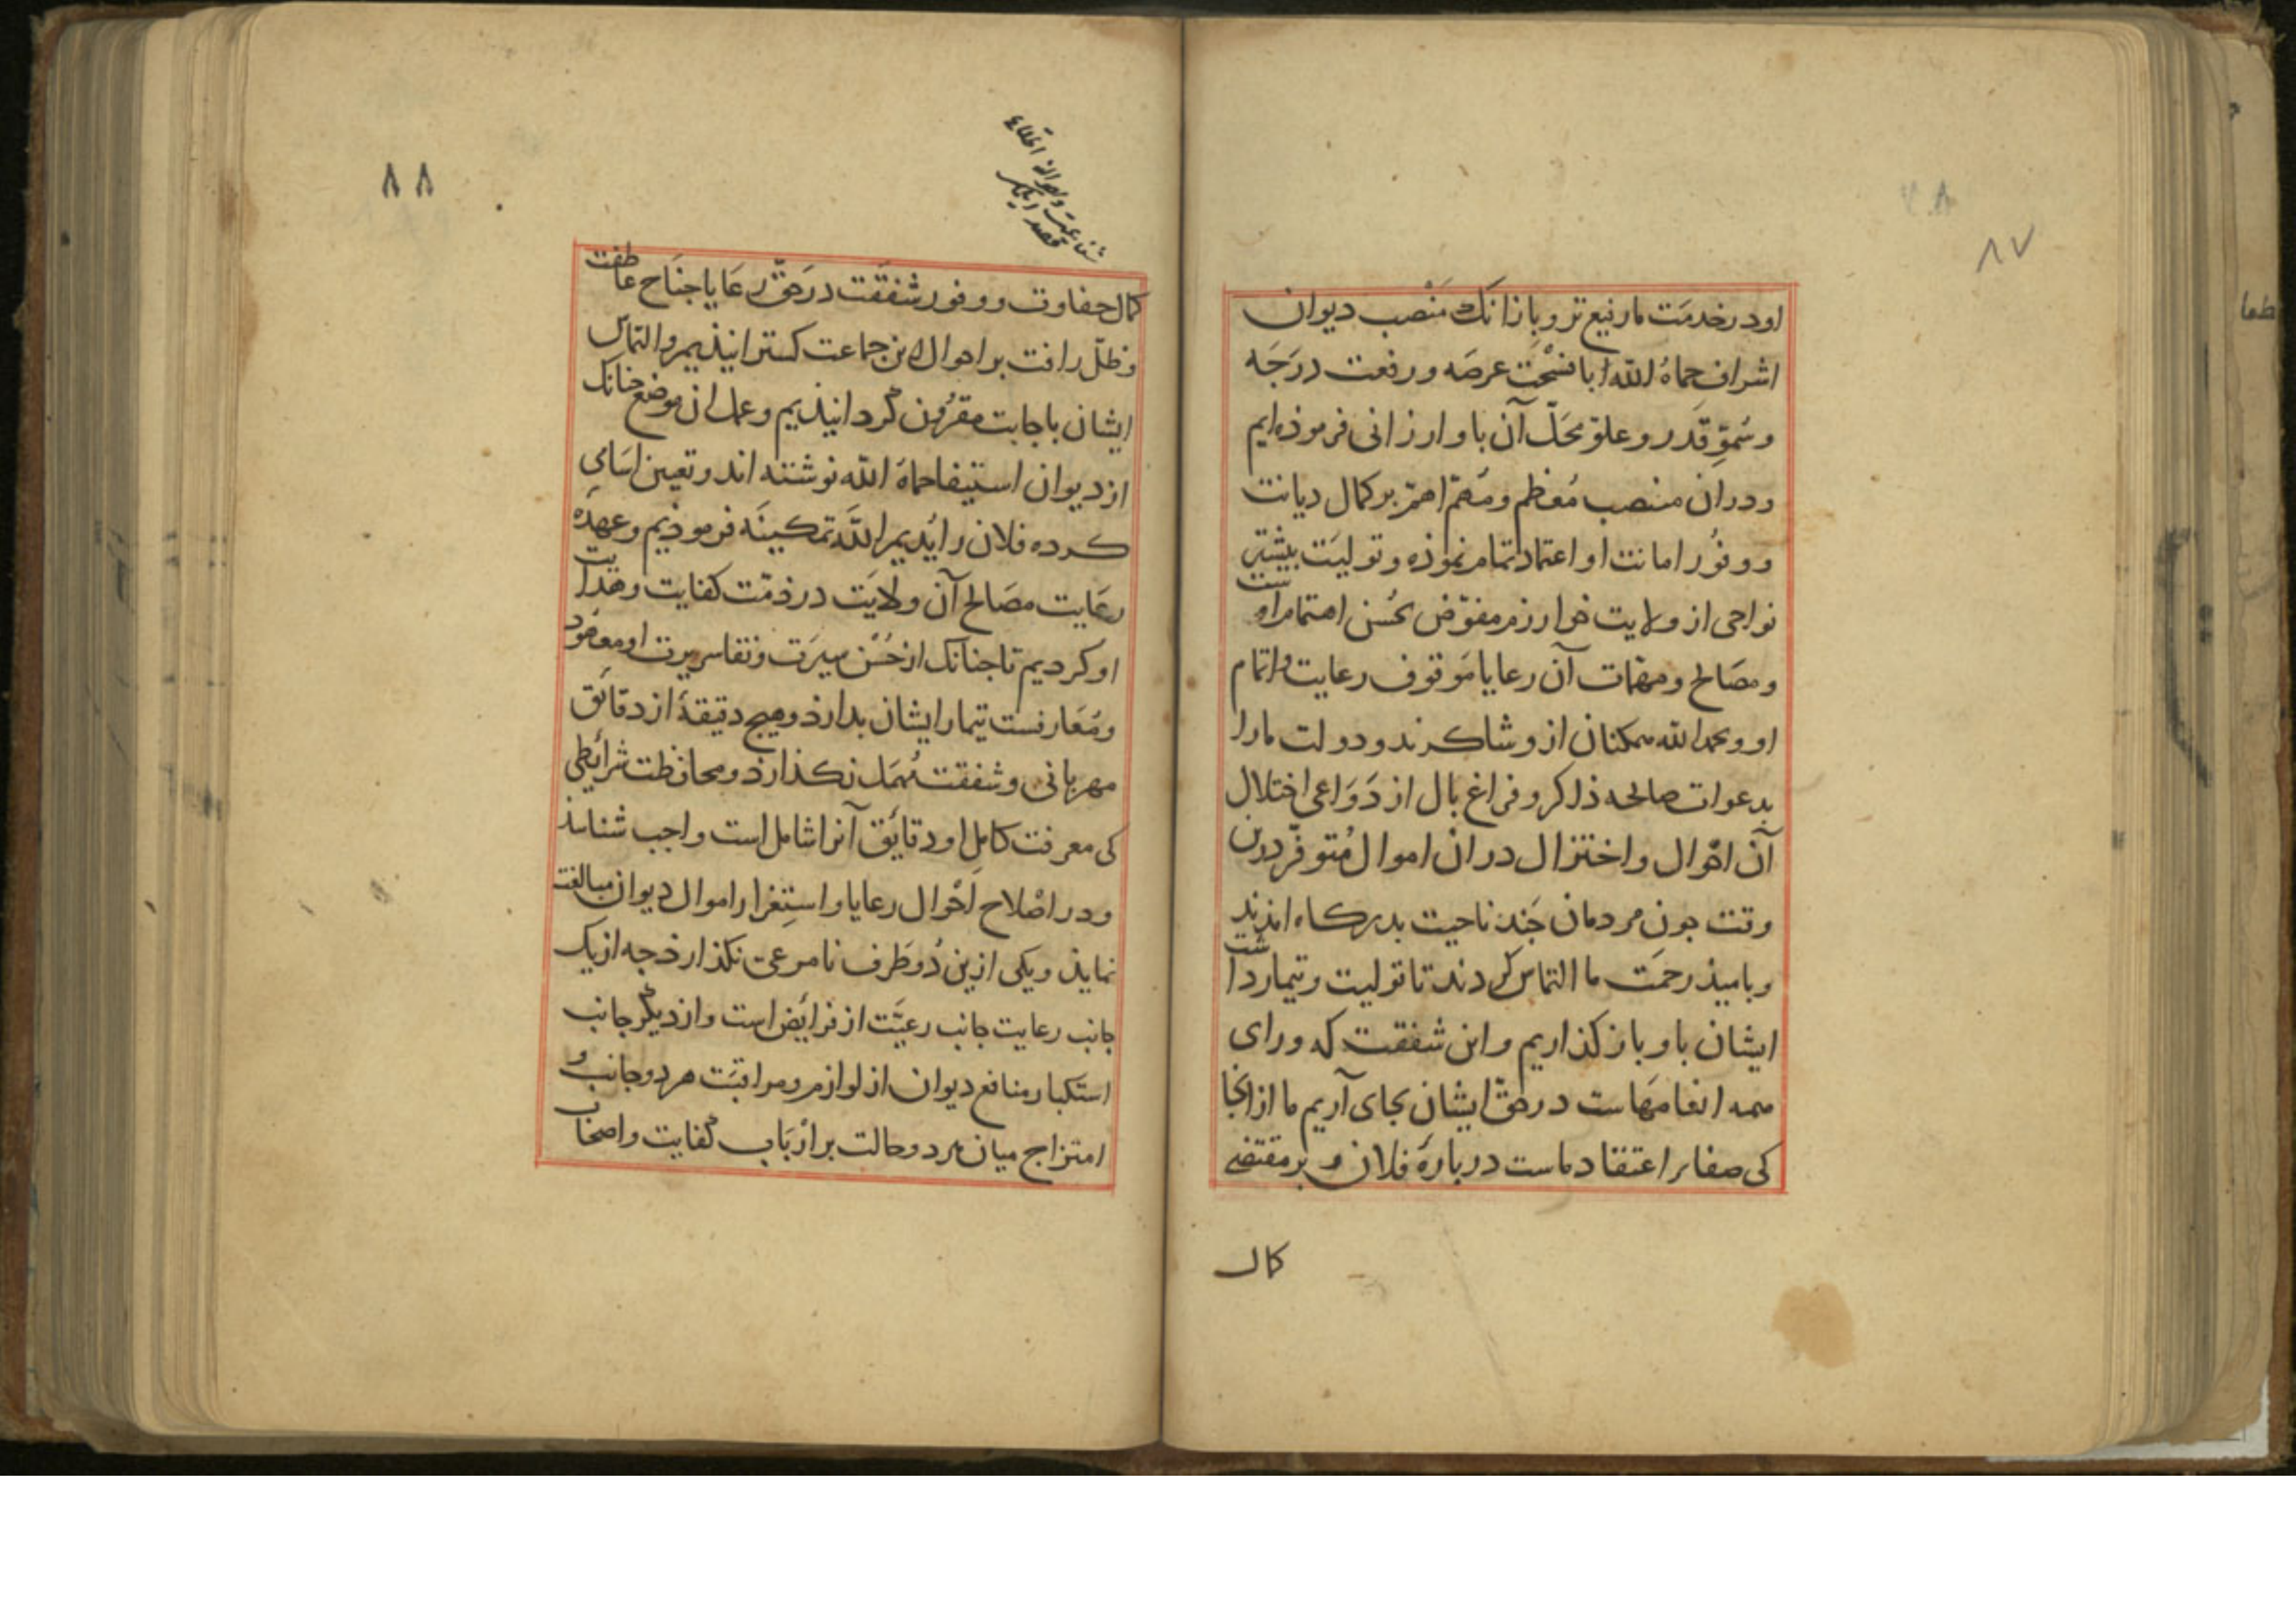 ۸۷
او در خدمت ما رفیع تر و باز انک منصب دیوان
اشراف حماهُ الله ابا فسْحَت عرصَه و رفعت درَجَه
و سُموِّ قَدر و علوّ محَلّ آن باو ارزانی فرموذه ایم
و دران منصب مُعظم و مُهمّ اهمّ بر کمال دیانت
و وفُور امانت او اعتماد تمام نموذه و تولیَت بیشتر
نواحی از ولایت خوارزم مفوّض بحُسن اهتمام اوست
و مصَالح و مهمّات آن رعایا مَوقوف رعایت و اتمام
او و بحمد الله همکنان ازو شاکرند و دولت ما را
بدعوات صالحه ذاکر و فراغ بال از دَوَاعی اختلال
آن احْوال و اختزال دران اموال مُتوفّر درین
وقت جون مردمان جَند ناحیت بدرکاه امذند
و بامیذ رحمَت ما التماس کردند تا تولیت و تیمار داشت
ایشان باو باز کذاریم و این شفقت که ورای
همه انعامَهاست در حقّ ایشان بجای آریم ما ازانجا
کی صفاء اعتقاد ماست دربارهٔ فلان و بر مقتضی
کمال
۸۸
کمال حفاوت و وفور شفقَت در حَقّ رعَایا جنَاح عاطفت
و ظلّ رافت بر احوال این جماعت کسترانیذیم و التماس
ایشان باجابت مقرُون گردانیذیم و عمل ان موضع جنانک
از دیوان استیفا حماهُ الله نوشته اند و تعیین اسَامی
کرده فلان را اَیدیم الله تمکینَه فرموذیم و عهدَه
رعَایت مصَالح آن ولایَت در ذمّت کفایت و هدایت
او کردیم تا جنانک از حُسْن سیرَت و نقاء سریرت او معهُود
و مُتعارفست تیمار ایشان بدارذ و هیج دقیقهٔ از دقائق
مهربانی و شفقت مُهمَل نکذارذ و محافظت شرائطی
کی معرفت کامل او دقائق آنرا شامل است واجب شناسذ
و در اصْلاح احْوال رعایا و استِغزار اموال دیوان مبالغت
نمایذ و یکی ازین دُو طَرف نامرعی نکذارذ جه از یک
جانب رعایت جانب رعیّت از فرائض است و از دیگر جانب
استکبار منافع دیوان از لوازم و مراقبَت هر دو جانب و
امتزاج میان هر دو حالت بر ارْبَاب کفایت و اصحاب